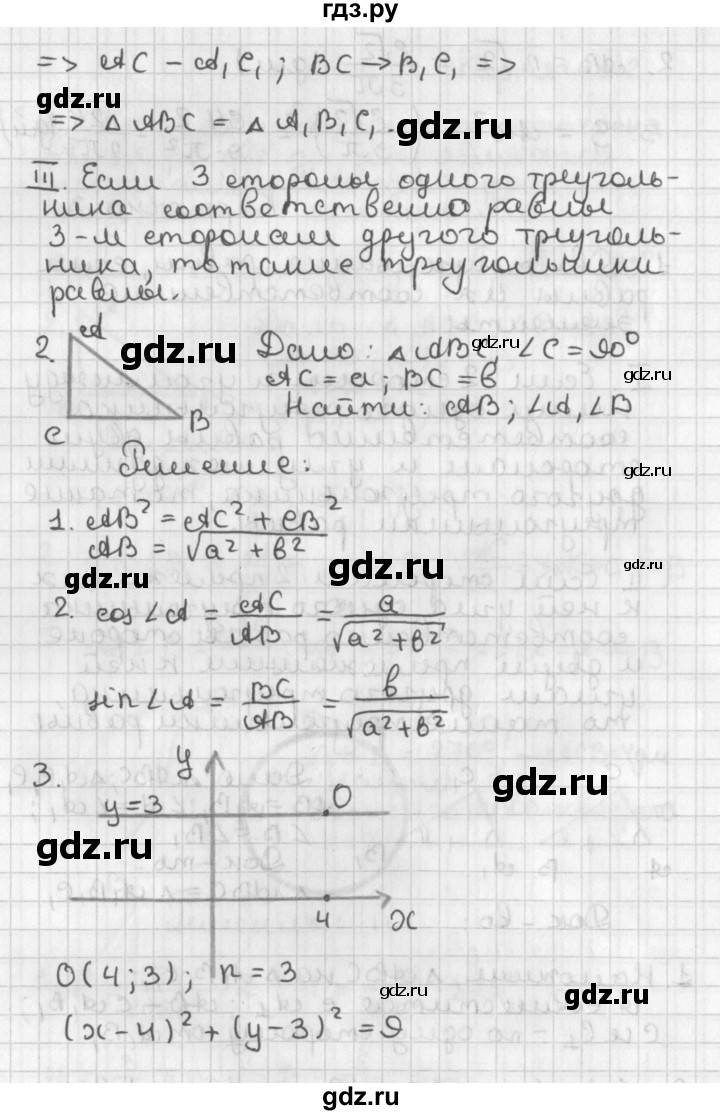 гдз.ру
=> AC – A₁C₁; BC → B₁C₁ =>
gdz.ru
=> △ ABC = △ A₁B₁C₁.
gdz.ru
III. Если 3 стороны одного треуголь-
ника соответственно равны
3-м сторонам другого треуголь-
ника, то такие треугольники
равны.
gdz.ru
2. A
gdz.ru
Дано: △ ABC, ∠C = 90°
gdz.ru
AC = a; BC = b
gdz.ru
Найти: AB; ∠A, ∠B
C B
Решение:
gdz.ru
1. AB² = AC² + CB²
AB = √a² + b²
gdz.ru
gdz.ru
gdz.ru
2. cos∠A = AC/AB = a/√a² + b²
sin∠A = BC/AB = b/√a² + b²
3. y
gdz.ru
y = 3 O
gdz.ru
4 x
O(4; 3); r = 3
gdz.ru
gdz.ru
(x – 4)² + (y – 3)² = 9
gdz.ru
gdz.ru